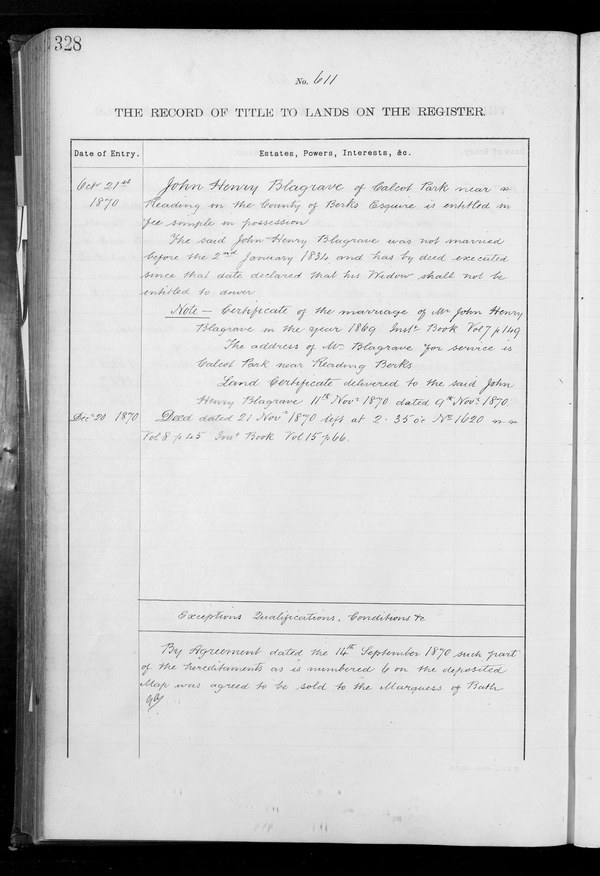 328
No. 611
THE RECORD OF TITLE TO LANDS ON THE REGISTER.
Date of Entry.
Estates, Powers, Interests, &c.
Oct 21st
1870
John Henry Blagrave of Calcot Park near
Reading in the County of Berks Esquire is entitled in
fee simple in possession
The said John Henry Blagrave was not married
before the 2nd January 1834 and has by deed executed
since that date declared that his Widow shall not be
entitled to dower
Note — Certificate of the marriage of Mr John Henry
Blagrave in the year 1869 Inst. Book Vol 7 p 149
The address of Mr Blagrave for service is
Calcot Park near Reading Berks
Land Certificate delivered to the said John
Henry Blagrave 11th Novr 1870 dated 9th Novr 1870
Decr 20 1870
Deed dated 21 Novr 1870 left at 2.35 o'c No 1620
Vol 8 p 45 Inst Book Vol 15 p 66.
Exceptions Qualifications, Conditions &c
By Agreement dated the 14th September 1870 such part
of the hereditaments as is numbered 6 on the deposited
Map was agreed to be sold to the Marquess of Bath